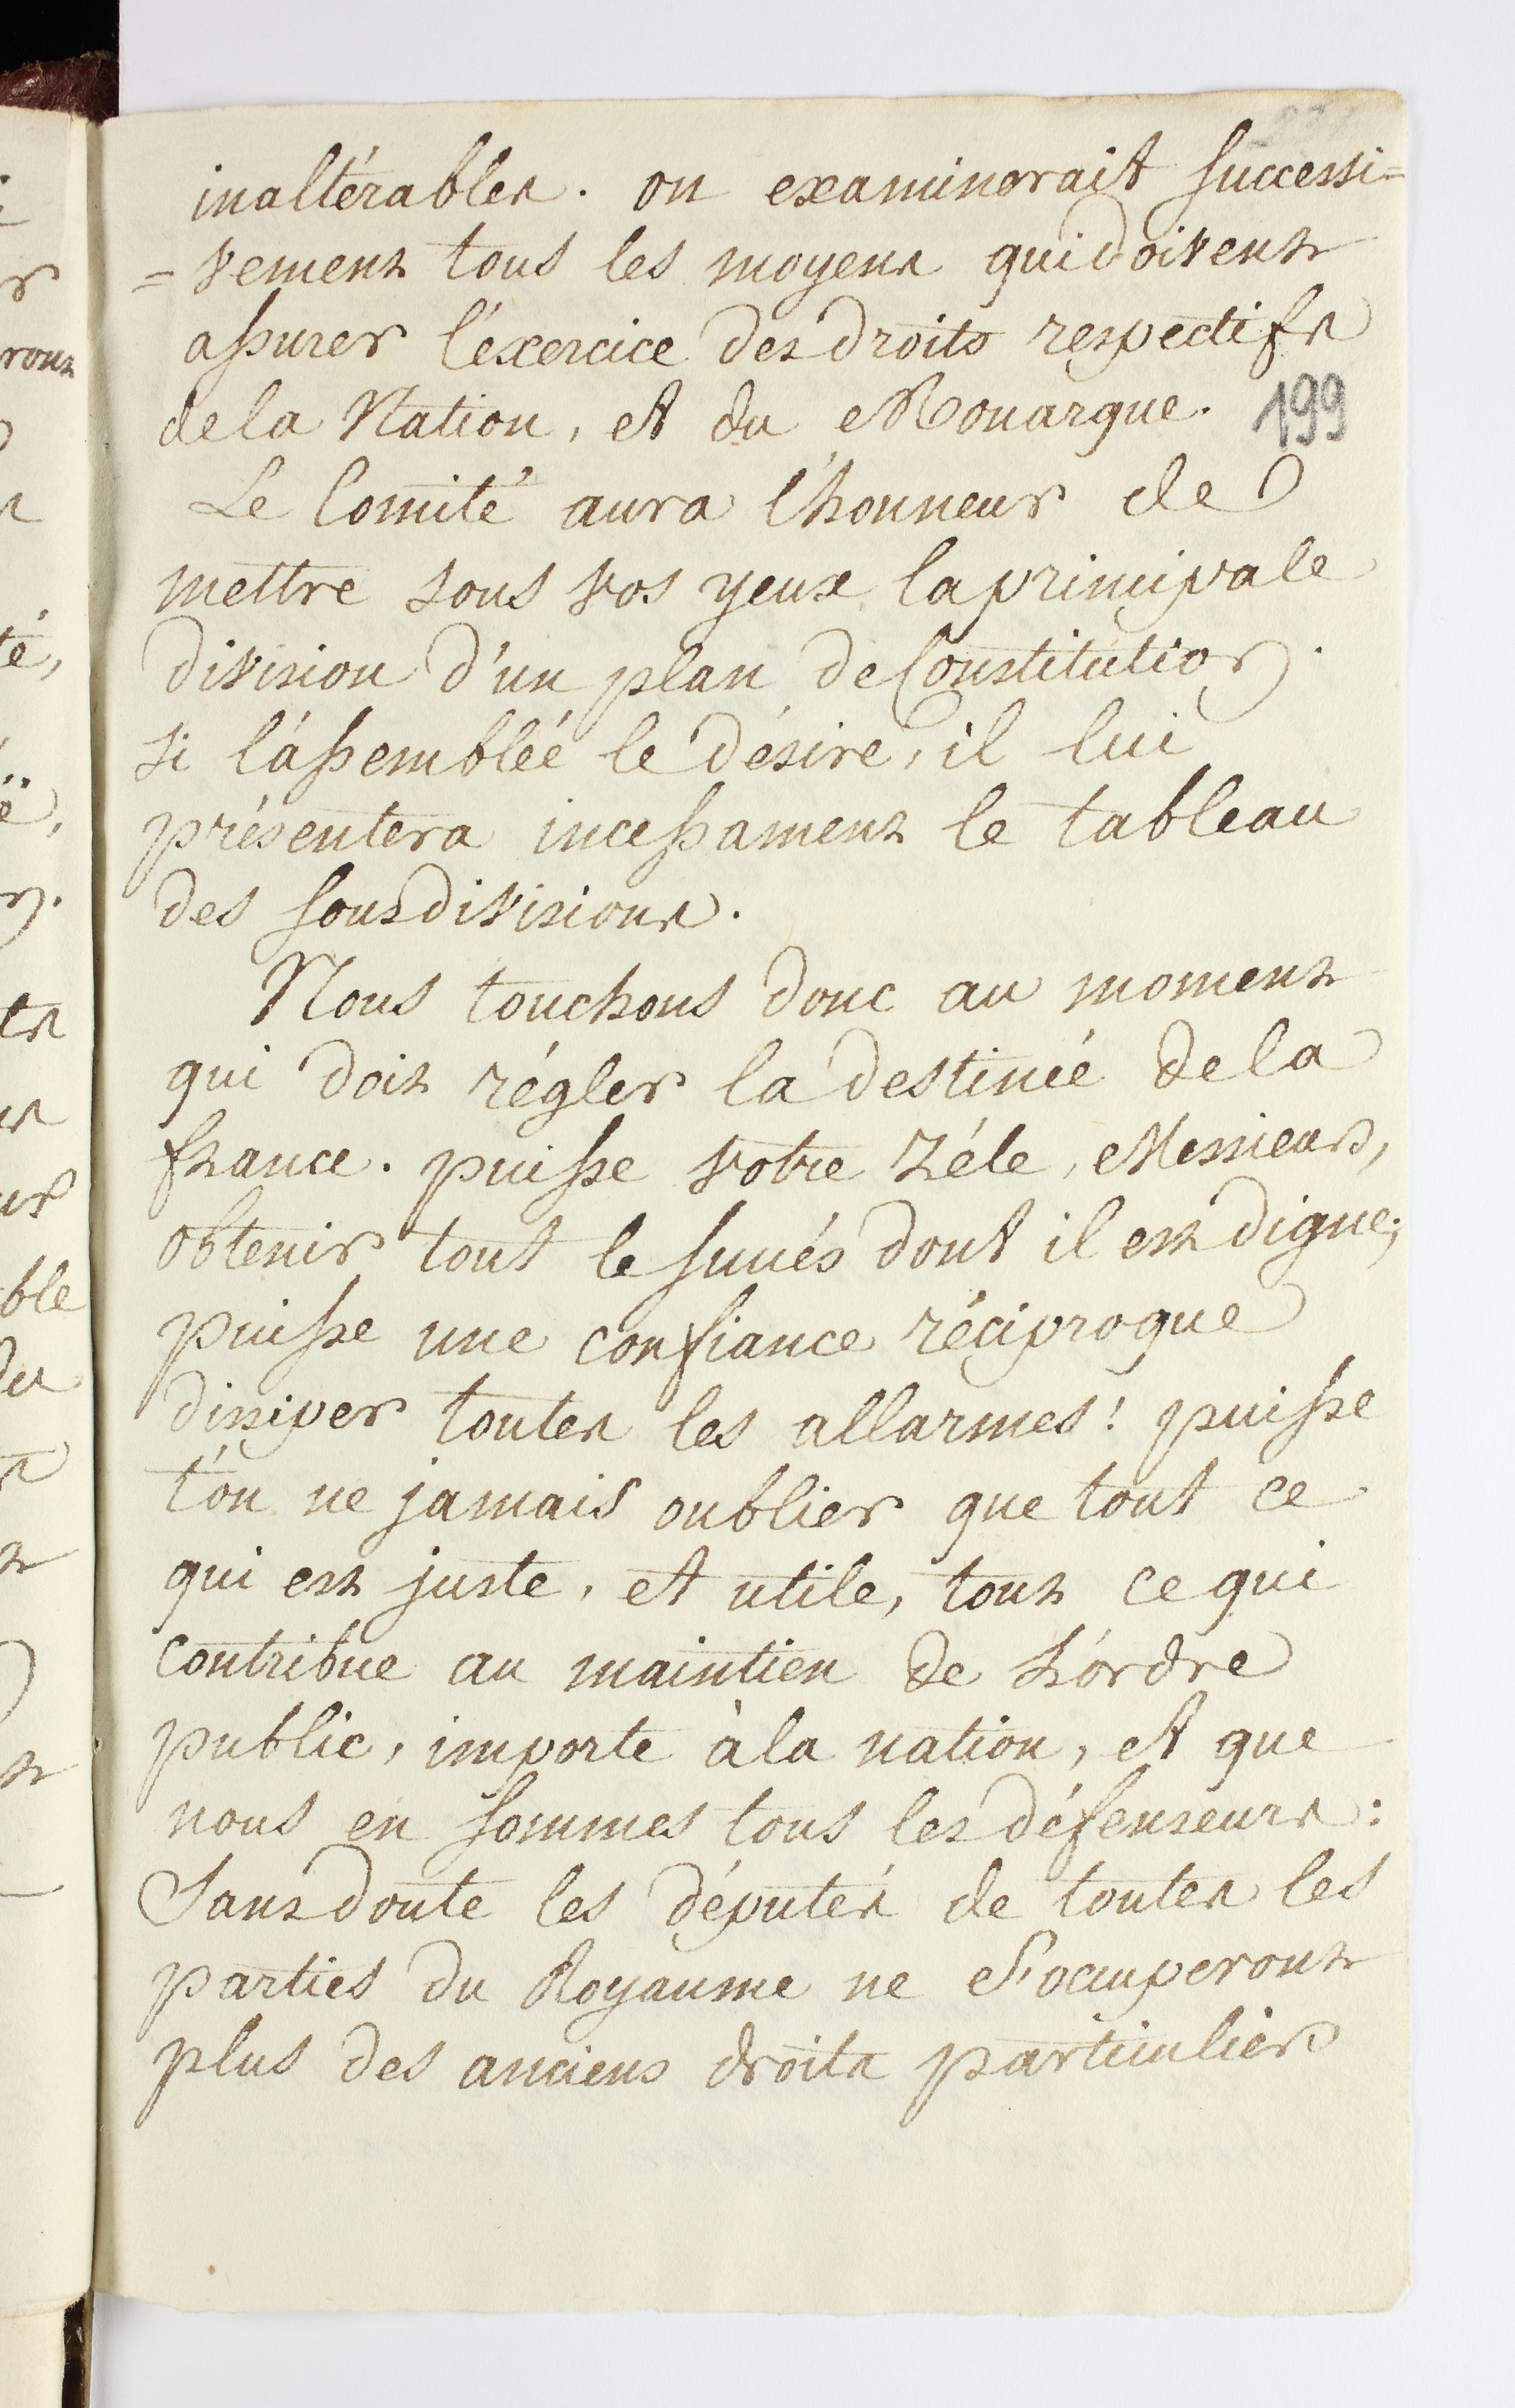 inaltérables. on examinerait successi=
=vement tous les moyens qui doivent
assurer l'éxercice des droits respectifs
de la Nation, et du Monarque. 199
Le Comité aura l'honneur de
mettre sous vos yeux la principale
division d'un plan de Constitution.
si l'assemblée le désire, il lui
présentera incessament le tableau
des sousdivisions.
Nous touchons donc au moment
qui doit régler la destinée de la
france. puisse votre zéle, Messieurs,
obtenir tout le succés dont il est digne;
puisse une confiance réciproque
dissiper toutes les allarmes! puisse
t'on ne jamais oublier que tout ce
qui est juste, et utile, tout ce qui
contribue au maintien de L'ordre
public, importe à la nation, et que
nous en sommes tous les défenseurs:
Sans doute les députés de toutes les
parties du Royaume ne s'occuperont
plus des anciens droits particuliers